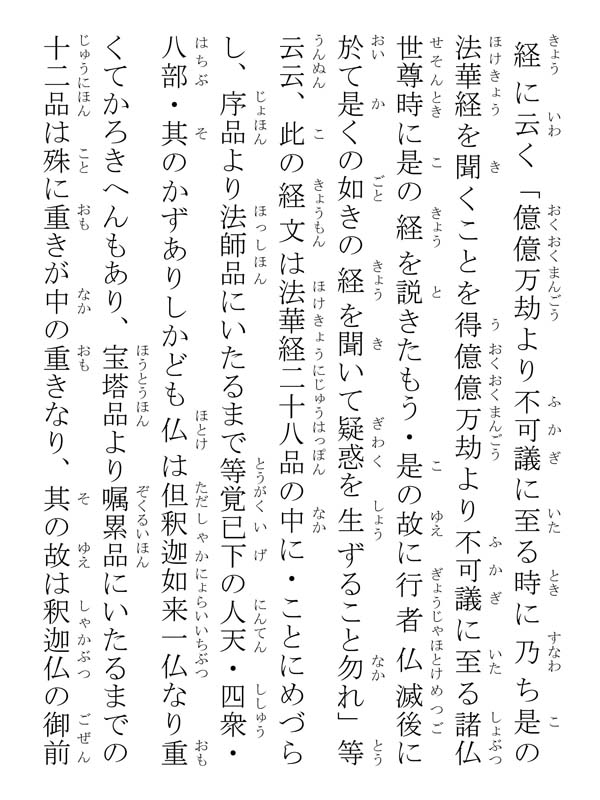 経に云く「億億万劫より不可議に至る時に乃ち是の
法華経を聞くことを得億億万劫より不可議に至る諸仏
世尊時に是の経を説きたもう・是の故に行者仏滅後に
於て是くの如きの経を聞いて疑惑を生ずること勿れ」等
云云、此の経文は法華経二十八品の中に・ことにめづら
し、序品より法師品にいたるまで等覚已下の人天・四衆・
八部・其のかずありしかども仏は但釈迦如来一仏なり重
くてかろきへんもあり、宝塔品より嘱累品にいたるまでの
十二品は殊に重きが中の重きなり、其の故は釈迦仏の御前